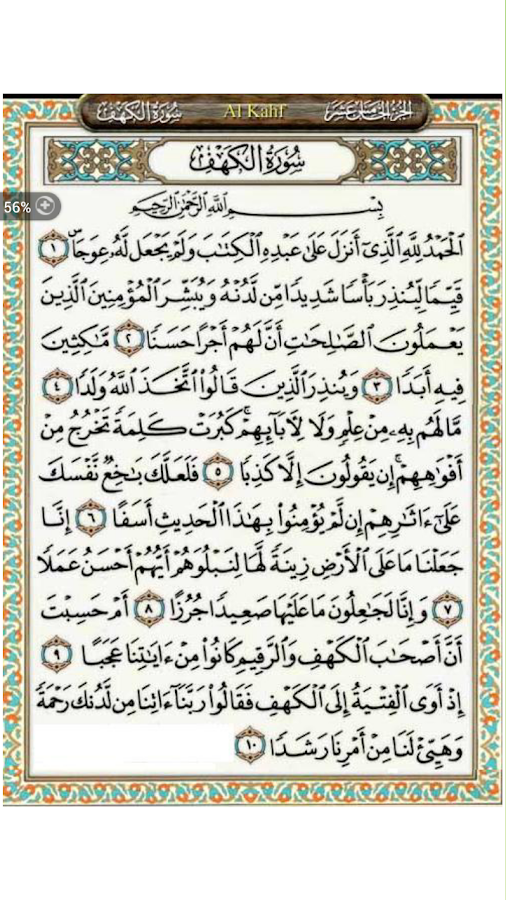 سُورَةُ الكَهْفِ Al Kahf الجُزءُ الخَامِسُ عَشَرَ
سُورَةُ الكَهْفِ
56%
بِسْمِ ٱللَّهِ ٱلرَّحْمَٰنِ ٱلرَّحِيمِ
ٱلْحَمْدُ لِلَّهِ ٱلَّذِىٓ أَنزَلَ عَلَىٰ عَبْدِهِ ٱلْكِتَٰبَ وَلَمْ يَجْعَل لَّهُۥ عِوَجَاۜ ١
قَيِّمًا لِّيُنذِرَ بَأْسًا شَدِيدًا مِّن لَّدُنْهُ وَيُبَشِّرَ ٱلْمُؤْمِنِينَ ٱلَّذِينَ
يَعْمَلُونَ ٱلصَّٰلِحَٰتِ أَنَّ لَهُمْ أَجْرًا حَسَنًا ٢ مَّٰكِثِينَ
فِيهِ أَبَدًا ٣ وَيُنذِرَ ٱلَّذِينَ قَالُوا۟ ٱتَّخَذَ ٱللَّهُ وَلَدًا ٤
مَّا لَهُم بِهِۦ مِنْ عِلْمٍ وَلَا لِءَابَآئِهِمْ ۚ كَبُرَتْ كَلِمَةً تَخْرُجُ مِنْ
أَفْوَٰهِهِمْ ۚ إِن يَقُولُونَ إِلَّا كَذِبًا ٥ فَلَعَلَّكَ بَٰخِعٌ نَّفْسَكَ
عَلَىٰٓ ءَاثَٰرِهِمْ إِن لَّمْ يُؤْمِنُوا۟ بِهَٰذَا ٱلْحَدِيثِ أَسَفًا ٦ إِنَّا
جَعَلْنَا مَا عَلَى ٱلْأَرْضِ زِينَةً لَّهَا لِنَبْلُوَهُمْ أَيُّهُمْ أَحْسَنُ عَمَلًا
٧ وَإِنَّا لَجَٰعِلُونَ مَا عَلَيْهَا صَعِيدًا جُرُزًا ٨ أَمْ حَسِبْتَ
أَنَّ أَصْحَٰبَ ٱلْكَهْفِ وَٱلرَّقِيمِ كَانُوا۟ مِنْ ءَايَٰتِنَا عَجَبًا ٩
إِذْ أَوَى ٱلْفِتْيَةُ إِلَى ٱلْكَهْفِ فَقَالُوا۟ رَبَّنَآ ءَاتِنَا مِن لَّدُنكَ رَحْمَةً
وَهَيِّئْ لَنَا مِنْ أَمْرِنَا رَشَدًا ١٠